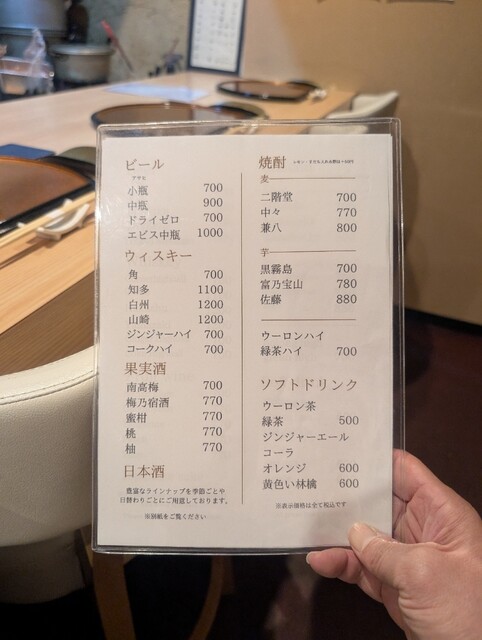 ビール
アサヒ
小瓶 700
中瓶 900
ドライゼロ 700
エビス中瓶 1000
ウィスキー
角 700
知多 1100
白州 1200
山崎 1200
ジンジャーハイ 700
コークハイ 700
果実酒
南高梅 700
梅乃宿酒 770
蜜柑 770
桃 770
柚 770
日本酒
豊富なラインナップを季節ごとや
日替わりごとにご用意しております。
※別紙をご覧ください
焼酎
麦
二階堂 700
中々 770
兼八 800
芋
黒霧島 700
富乃宝山 780
佐藤 880
ウーロンハイ
緑茶ハイ 700
ソフトドリンク
ウーロン茶
緑茶 500
ジンジャーエール
コーラ
オレンジ 600
黄色い林檎 600
※表示価格は全て税込です